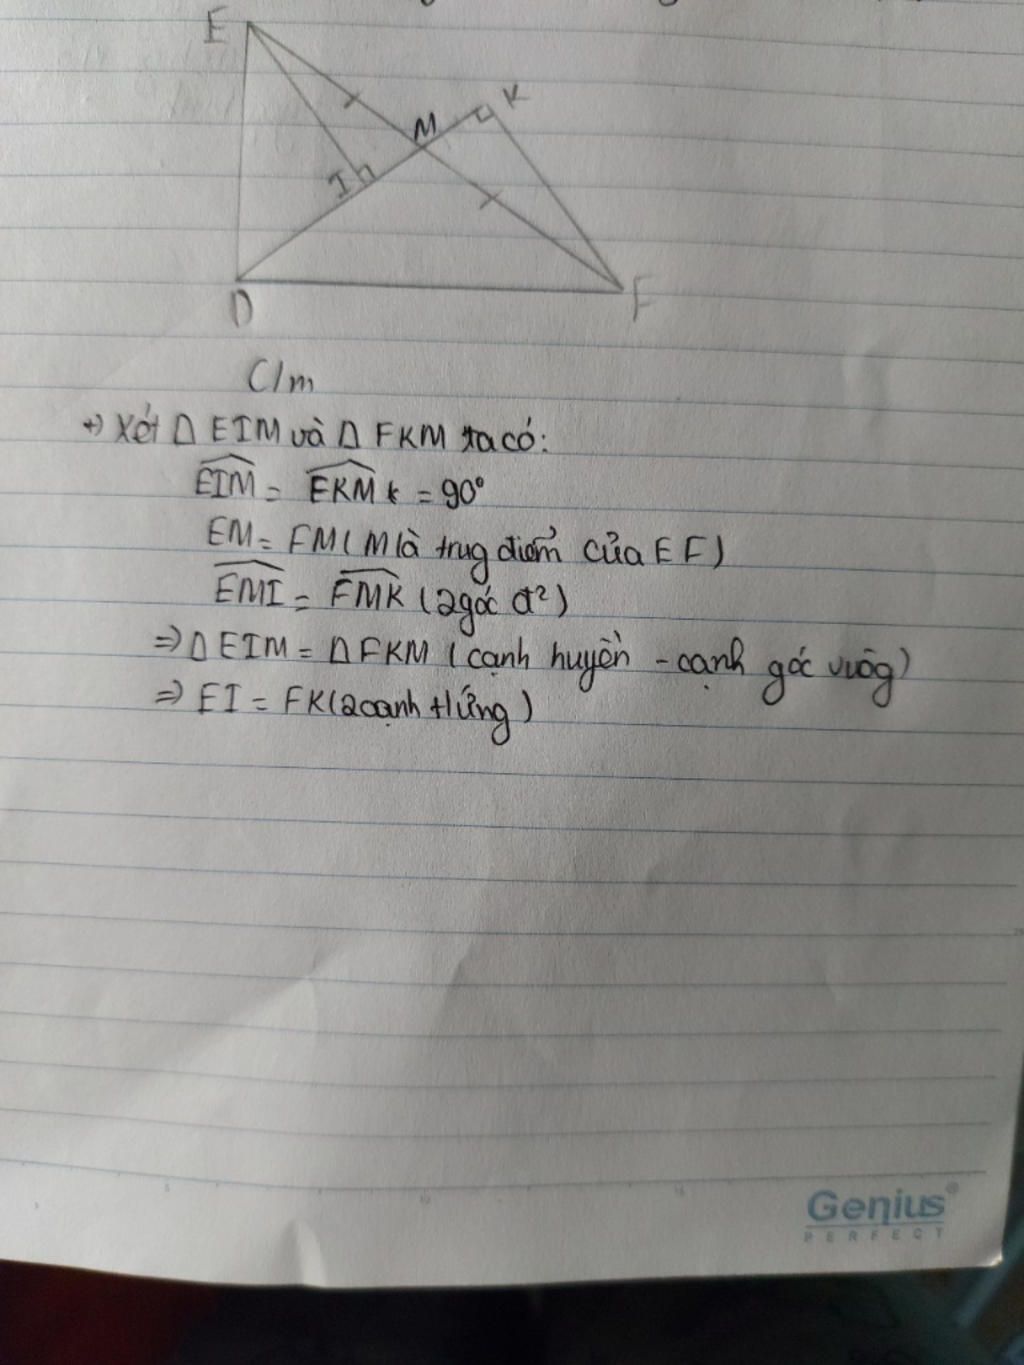 E
K
M
I
D
F
C/m
+) Xét Δ EIM và Δ FKM ta có:
EIM = FKM = 90°
EM = FM (M là trug điểm của EF)
EMI = FMK (2 góc đ²)
=> Δ EIM = Δ FKM (cạnh huyền - cạnh góc vuôg)
=> EI = FK (2 cạnh t/ứng)
Genius
PERFECT